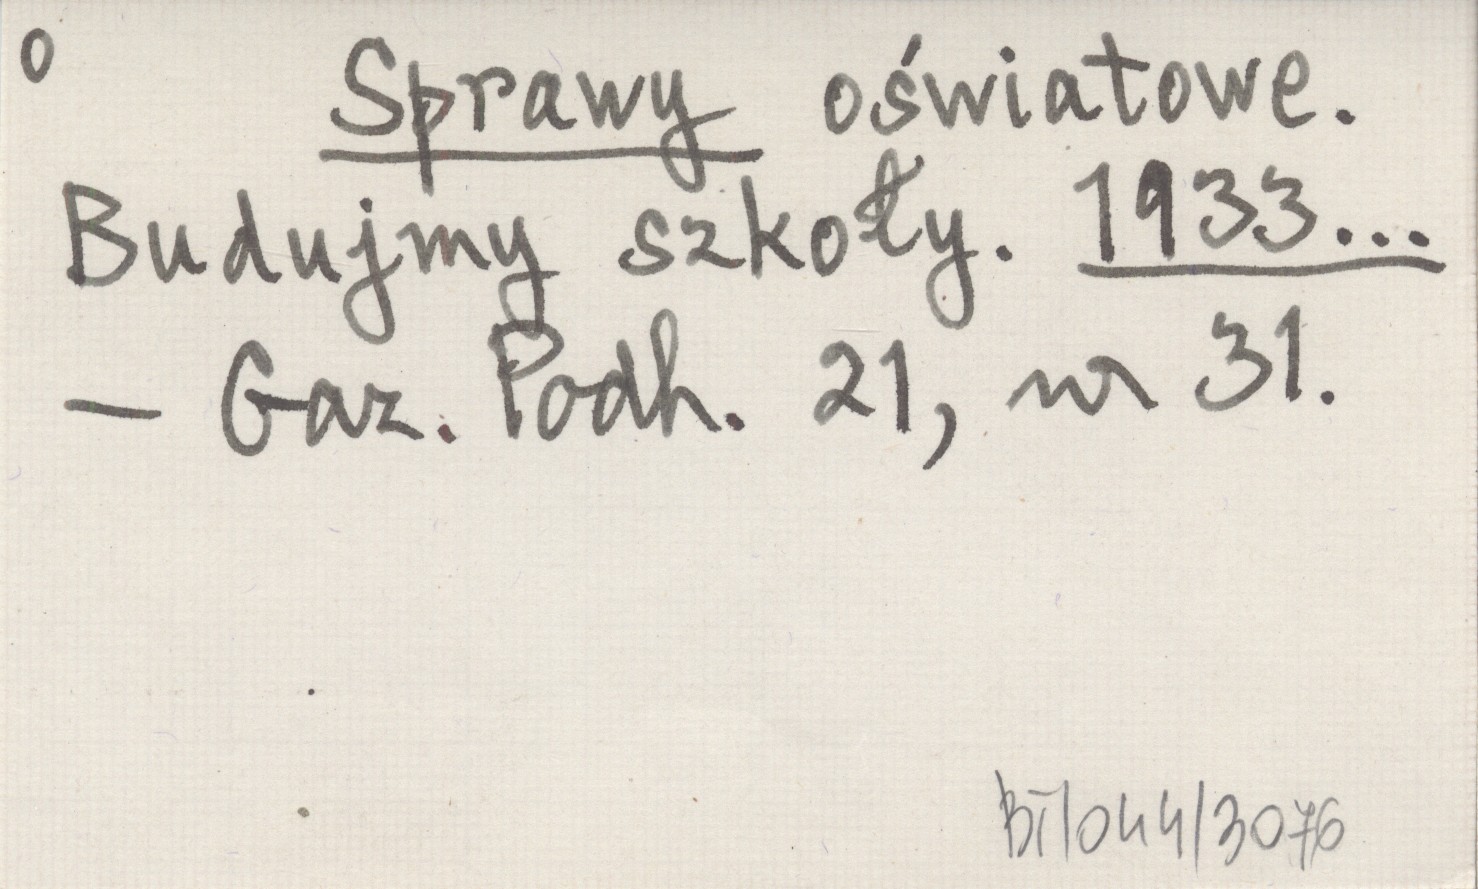 o
Sprawy oświatowe.
Budujmy szkoły. 1933...
— Gaz. Podh. 21, nr 31.
BI/044/3076